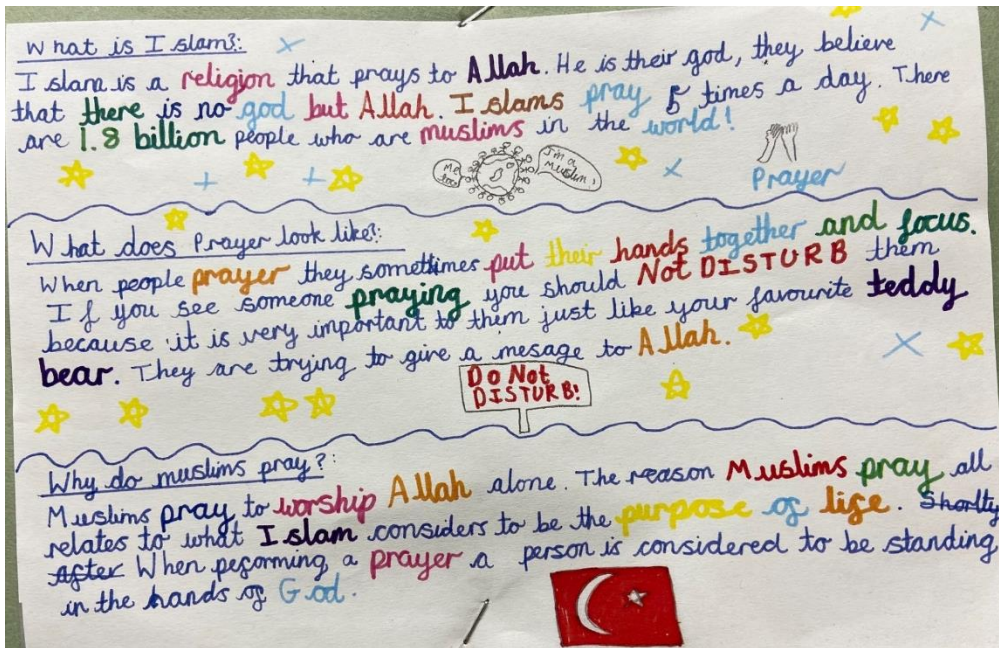 What is Islam?:
Islam is a religion that prays to Allah. He is their god, they believe
that there is no god but Allah. Islams pray 5 times a day. There
are 1.8 billion people who are muslims in the world!
Me too
I'm a Muslim,
Prayer
What does Prayer look like?:
When people prayer they sometimes put their hands together and focus.
If you see someone praying you should Not DISTURB them
because it is very important to them just like your favourite teddy
bear. They are trying to give a mesage to Allah.
Do Not
DISTURB!
Why do muslims pray?:
Muslims pray to worship Allah alone. The reason Muslims pray all
relates to what Islam considers to be the purpose of life. Shortly
after When peforming a prayer a person is considered to be standing
in the hands of God.